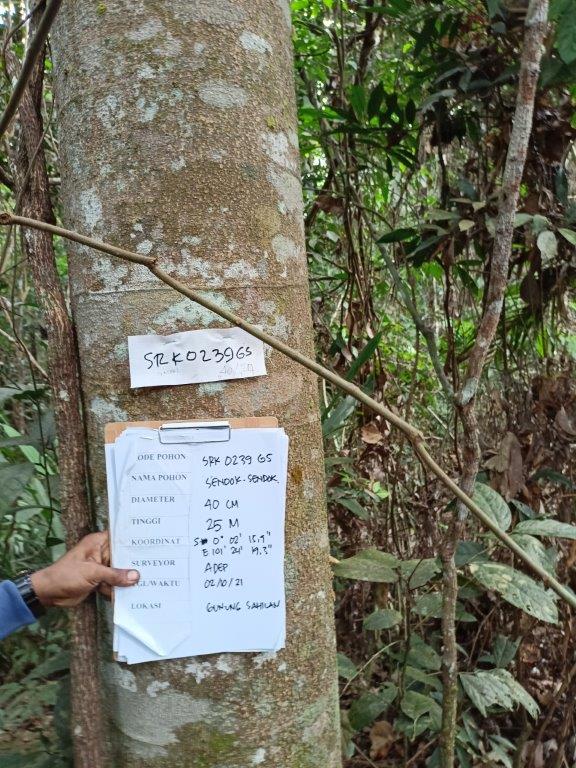 SRK0239GS
ODE POHON SRK 0239 GS
NAMA POHON SENDOK-SENDOK
DIAMETER 40 CM
TINGGI 25 M
KOORDINAT S 0° 02' 15.9"
E 101° 24' 19.3"
SURVEYOR ADEP
GL/WAKTU 02/10/21
LOKASI GUNUNG SAHILAN